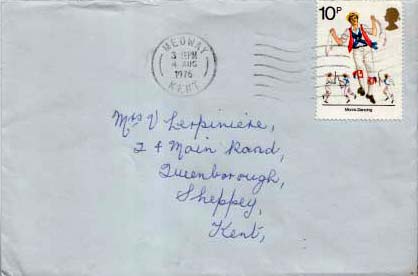 MEDWAY
3 15PM
4 AUG
1976
KENT
10P
Morris Dancing
Mrs V Lerpiniere,
24 Main Road,
Queenborough,
Sheppey,
Kent,